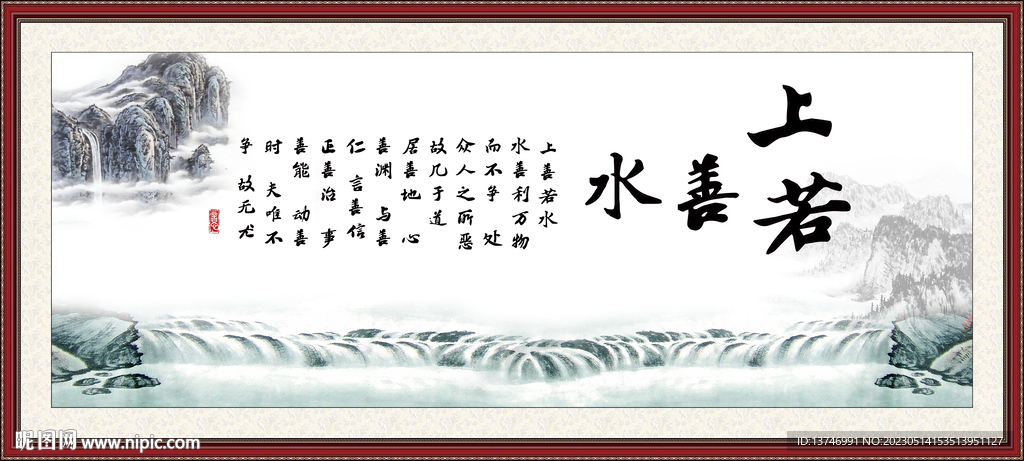 上善若水
上善若水
水善利万物
而不争 处
众人之所恶
故几于道
居善地 心
善渊 与善
仁 言善信
正善治 事
善能 动善
时 夫唯不
争 故无尤
昵图网 www.nipic.com
ID:13746991 NO:20230514153513951127